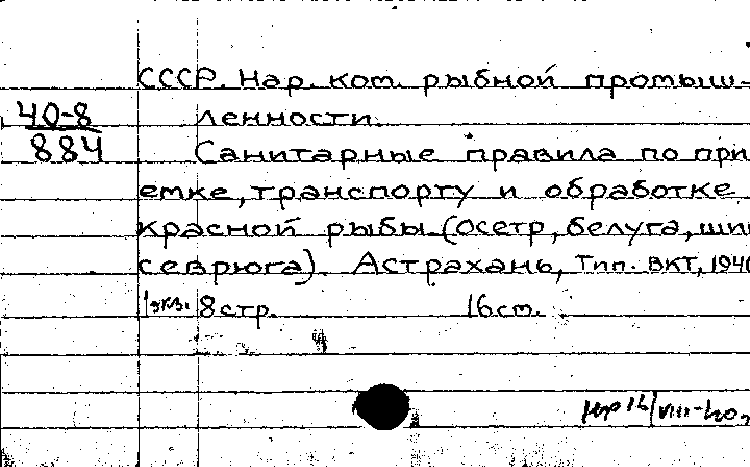 СССР. Нар. ком. рыбной промыш-
40-8
ленности.
884
Санитарные правила по при
емке, транспорту и обработке
красной рыбы (осетр, белуга, шип
севрюга). Астрахань, тип. ВКТ, 1940
1экз. 8стр. 16см.